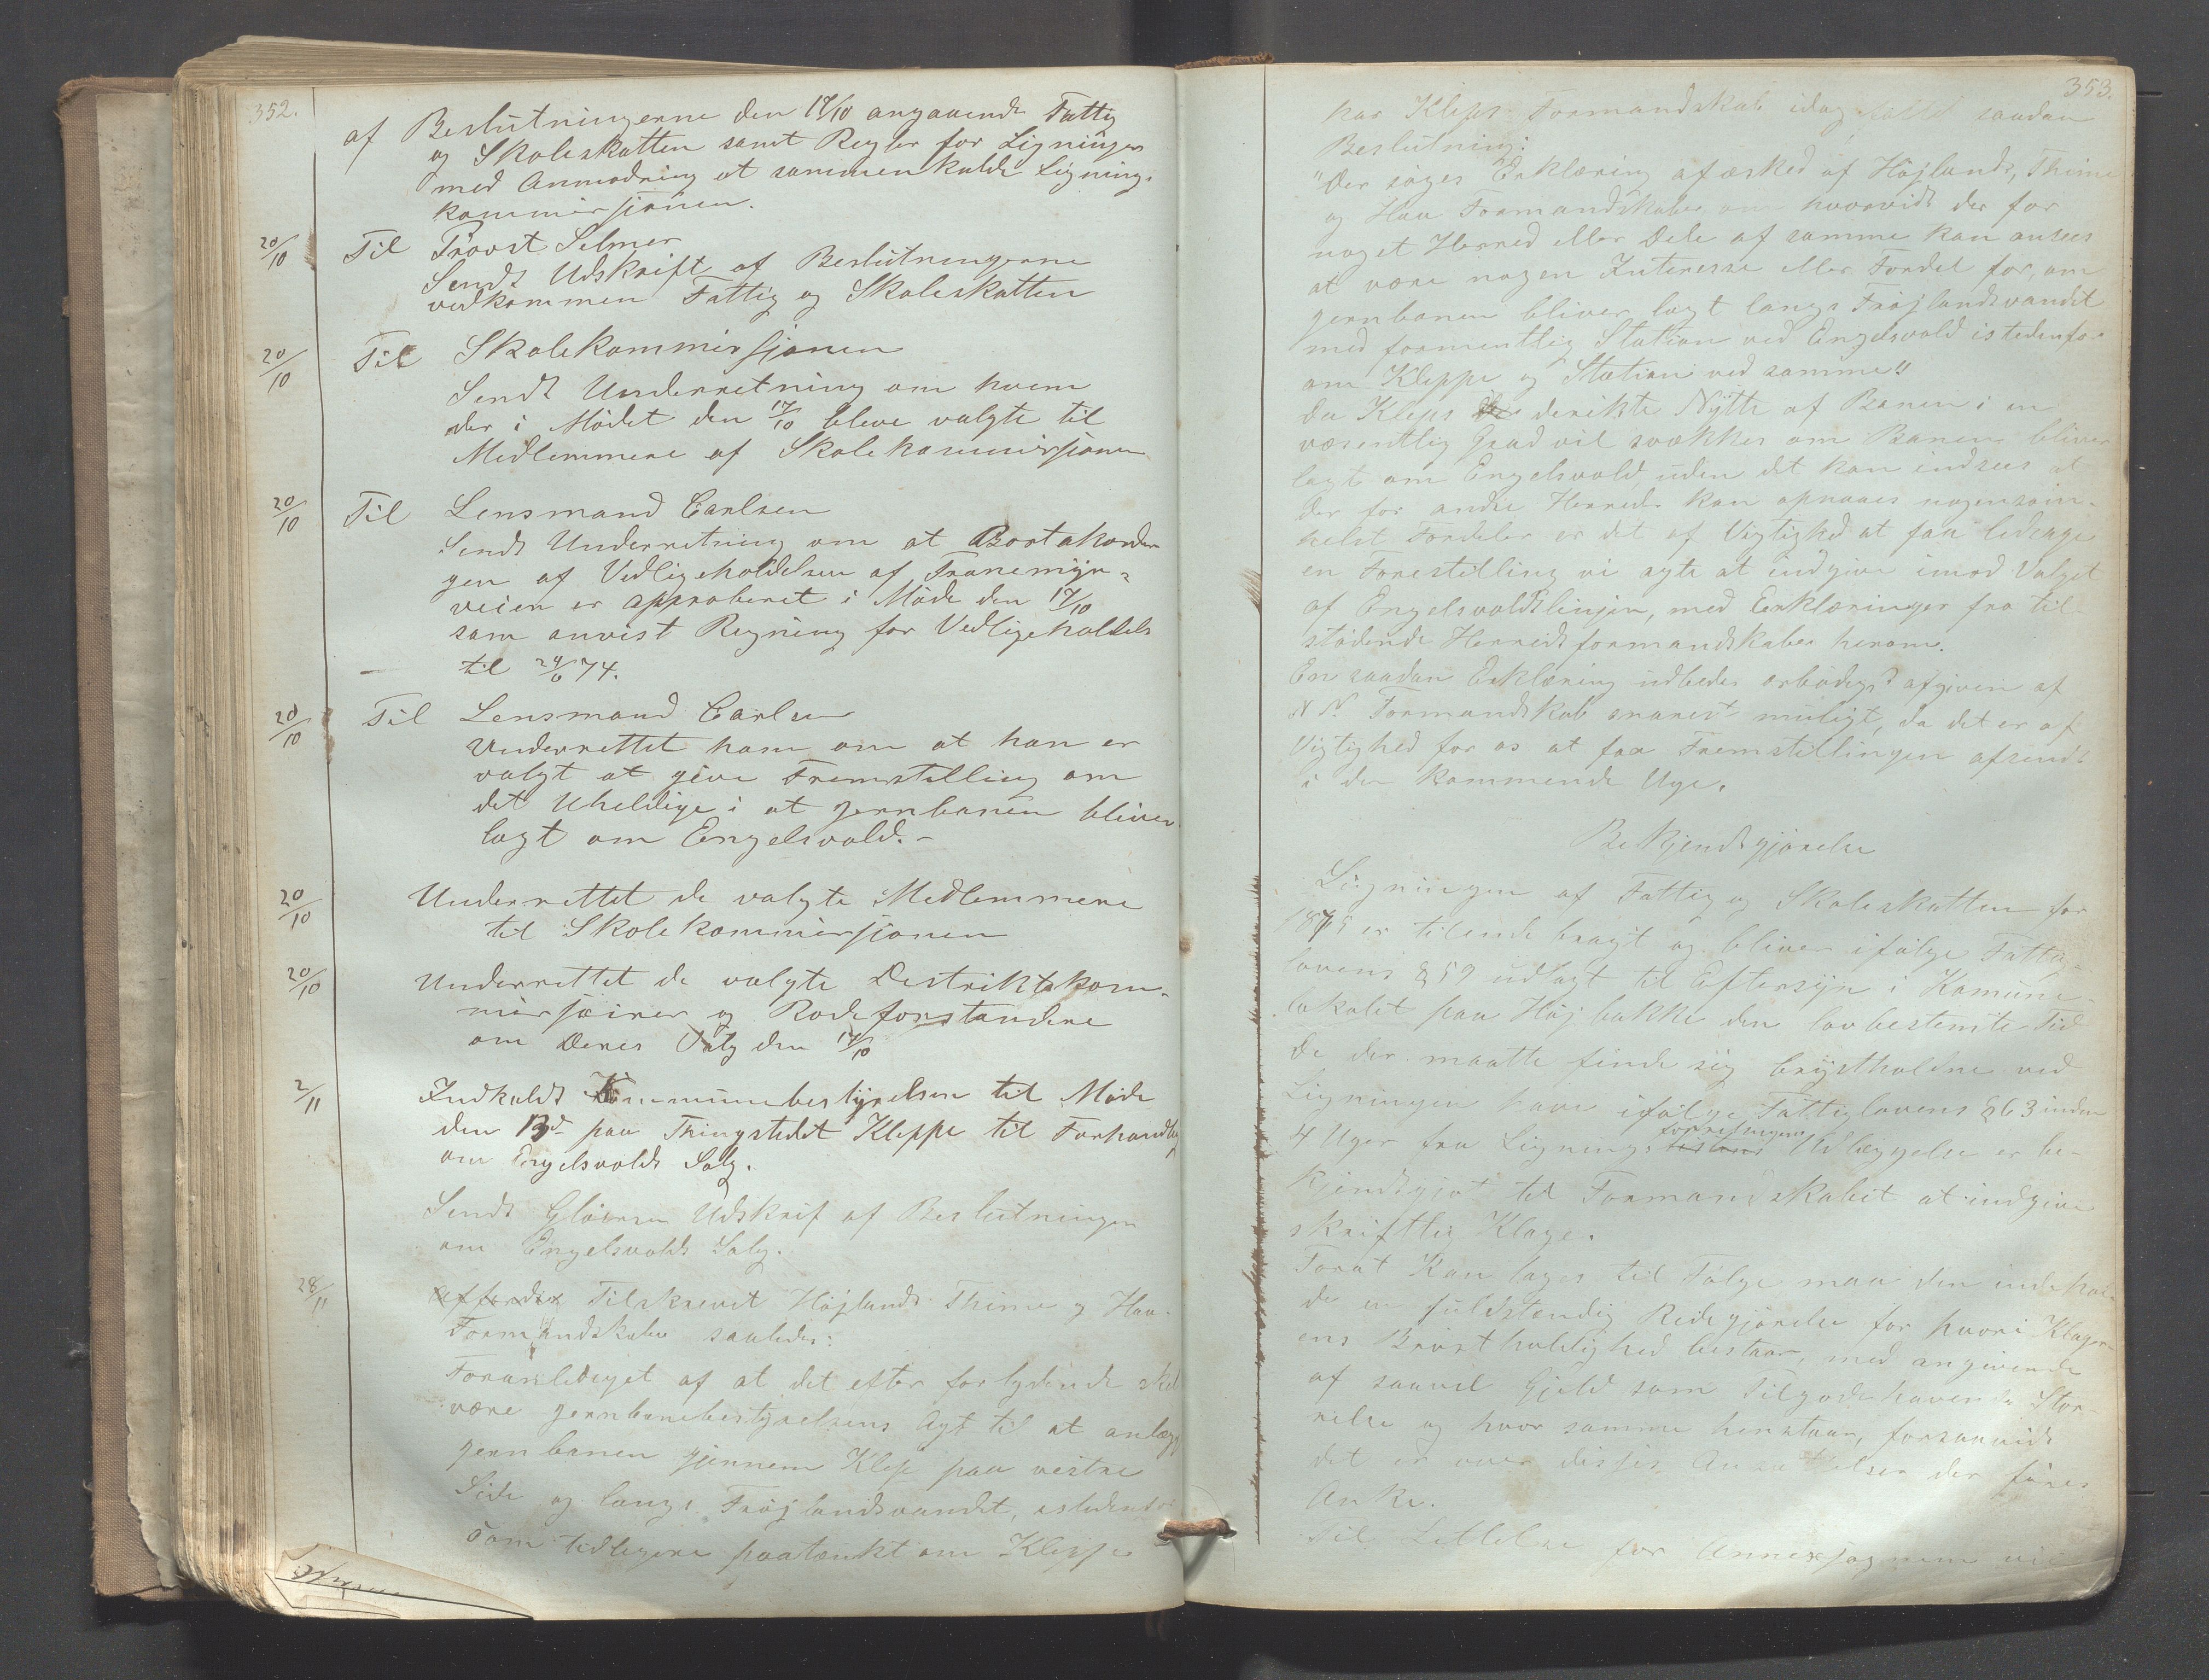 352.
af Beslutningerne den 17/10 angaaende Fattig
og Skoleskatten samt Regler for Ligningen
med Anmodning at sammenkalde Lignings
kommissjonen.
20/10 Til Provst Selmer
Sendt Udskrift af Beslutningerne
vedkommen Fattig og Skoleskatten
20/10 Til Skolekommissjonen
Sendt Underretning om hvem
der i Mödet den 17/10 bleve valgte til
Medlemmere af Skolekommissjonen
20/10 Til Lensmand Carlsen
Sendt Underretning om at Bortakorder
gen af Vedligeholdelsen af Tranemyr=
veien er approberet i Möde den 17/10
sam anvist Regning for Vedligeholdels
til 24/6 74.
20/10 Til Lensmand Carlsen
Underrettet ham om at han er
valgt at give Fremstilling om
det Uheldige i at jernbanen bliver
lagt om Engelsvold.-
20/10 Underrettet de valgte Medlemmere
til Skolekommissjonen
20/10 Underrettet de valgte Destriktskom-
missjoirer og Rodeforstandere
om Deres Valg den 17/10
2/11 Indkaldt Kommunebestyrelsen til Möde
den 13d paa Thingstedet Kleppe til Forhandlg
om Engelsvolds Salg.
Sendt Glöersen Udskrif af Beslutningen
om Engelsvolds Salg.
28/11 Tilskrevet Höjlands Thime og Haa
Formandskaber saaledes:
Foranlediget af at det efter forlydende skal
være jernbanebestyrelsens Agt til at anlægg
jernbanen gjennem Klep paa vestre
Side og langs Fröjlandsvandet, istedenfor
som tidligere paatænkt om Kleppe
353.
har Kleps Formandskab idag fattet saadan
Beslutning:
"Der söges Erklæring afæsked af Höjlands, Thime
og Haa Formandskaber om hvorvidt der for
noget Herred eller Dele af samme kan ansees
at være nogen Interesse eller Fordel for, om
jernbanen bliver lagt langs Fröjlandsvandet
med formentlig Station ved Engelsvold istedenfor
om Kleppe og Station ved samme"
Da Kleps derikte Nytte af Banen i en
væsentlig Grad vil svækkes om Banen bliver
lagt om Engelsvold, uden det kan indsees at
der for andre Herreder kan opnaaes nogensom-
helst Fordeler er det af Vigtighed at faa ledsage
en Forestilling vi agte at indgive imod Valget
af Engelsvoldslinjen, med Erklæringer fra til
stödende Herredsformandskaber herom.
En saadan Erklæring udbedes ærbödigst afgiven af
N N. Formandskab snarest muligt, da det er af
Vigtighed for os at faa Fremstillingen afsendt
i den kommende Uge.
Bekjendtgjörelse
Ligningen af Fattig og Skoleskatten for
1875 er tilende bragt og bliver ifölge Fattig=
lovens § 59 udlagt til Eftersyn i Komune-
lokalet paa Höj bakke den lovbestemte Tid
De der maatte finde sig bröstholdne ved
Ligningen have ifölge Fattiglovens § 63 inden
4 Uger fra Lignings forretningens Udlæggelse er be-
kjendtgjort til Formandskabet at indgive
skriftlig Klage.
Forat kan tages til Fölge maa den indehol
de en fuldstendig Redegjörelse for hvori Klager
ens Brösthold​ighed bestaar, med angivende
af saavel Gjeld som Tilgodehavende Stör-
relse og hvor samme henstaar, forsaavidt
det er over disses Ansættelser der föres
Anke.
Til Lettelse for Annexsognene vil